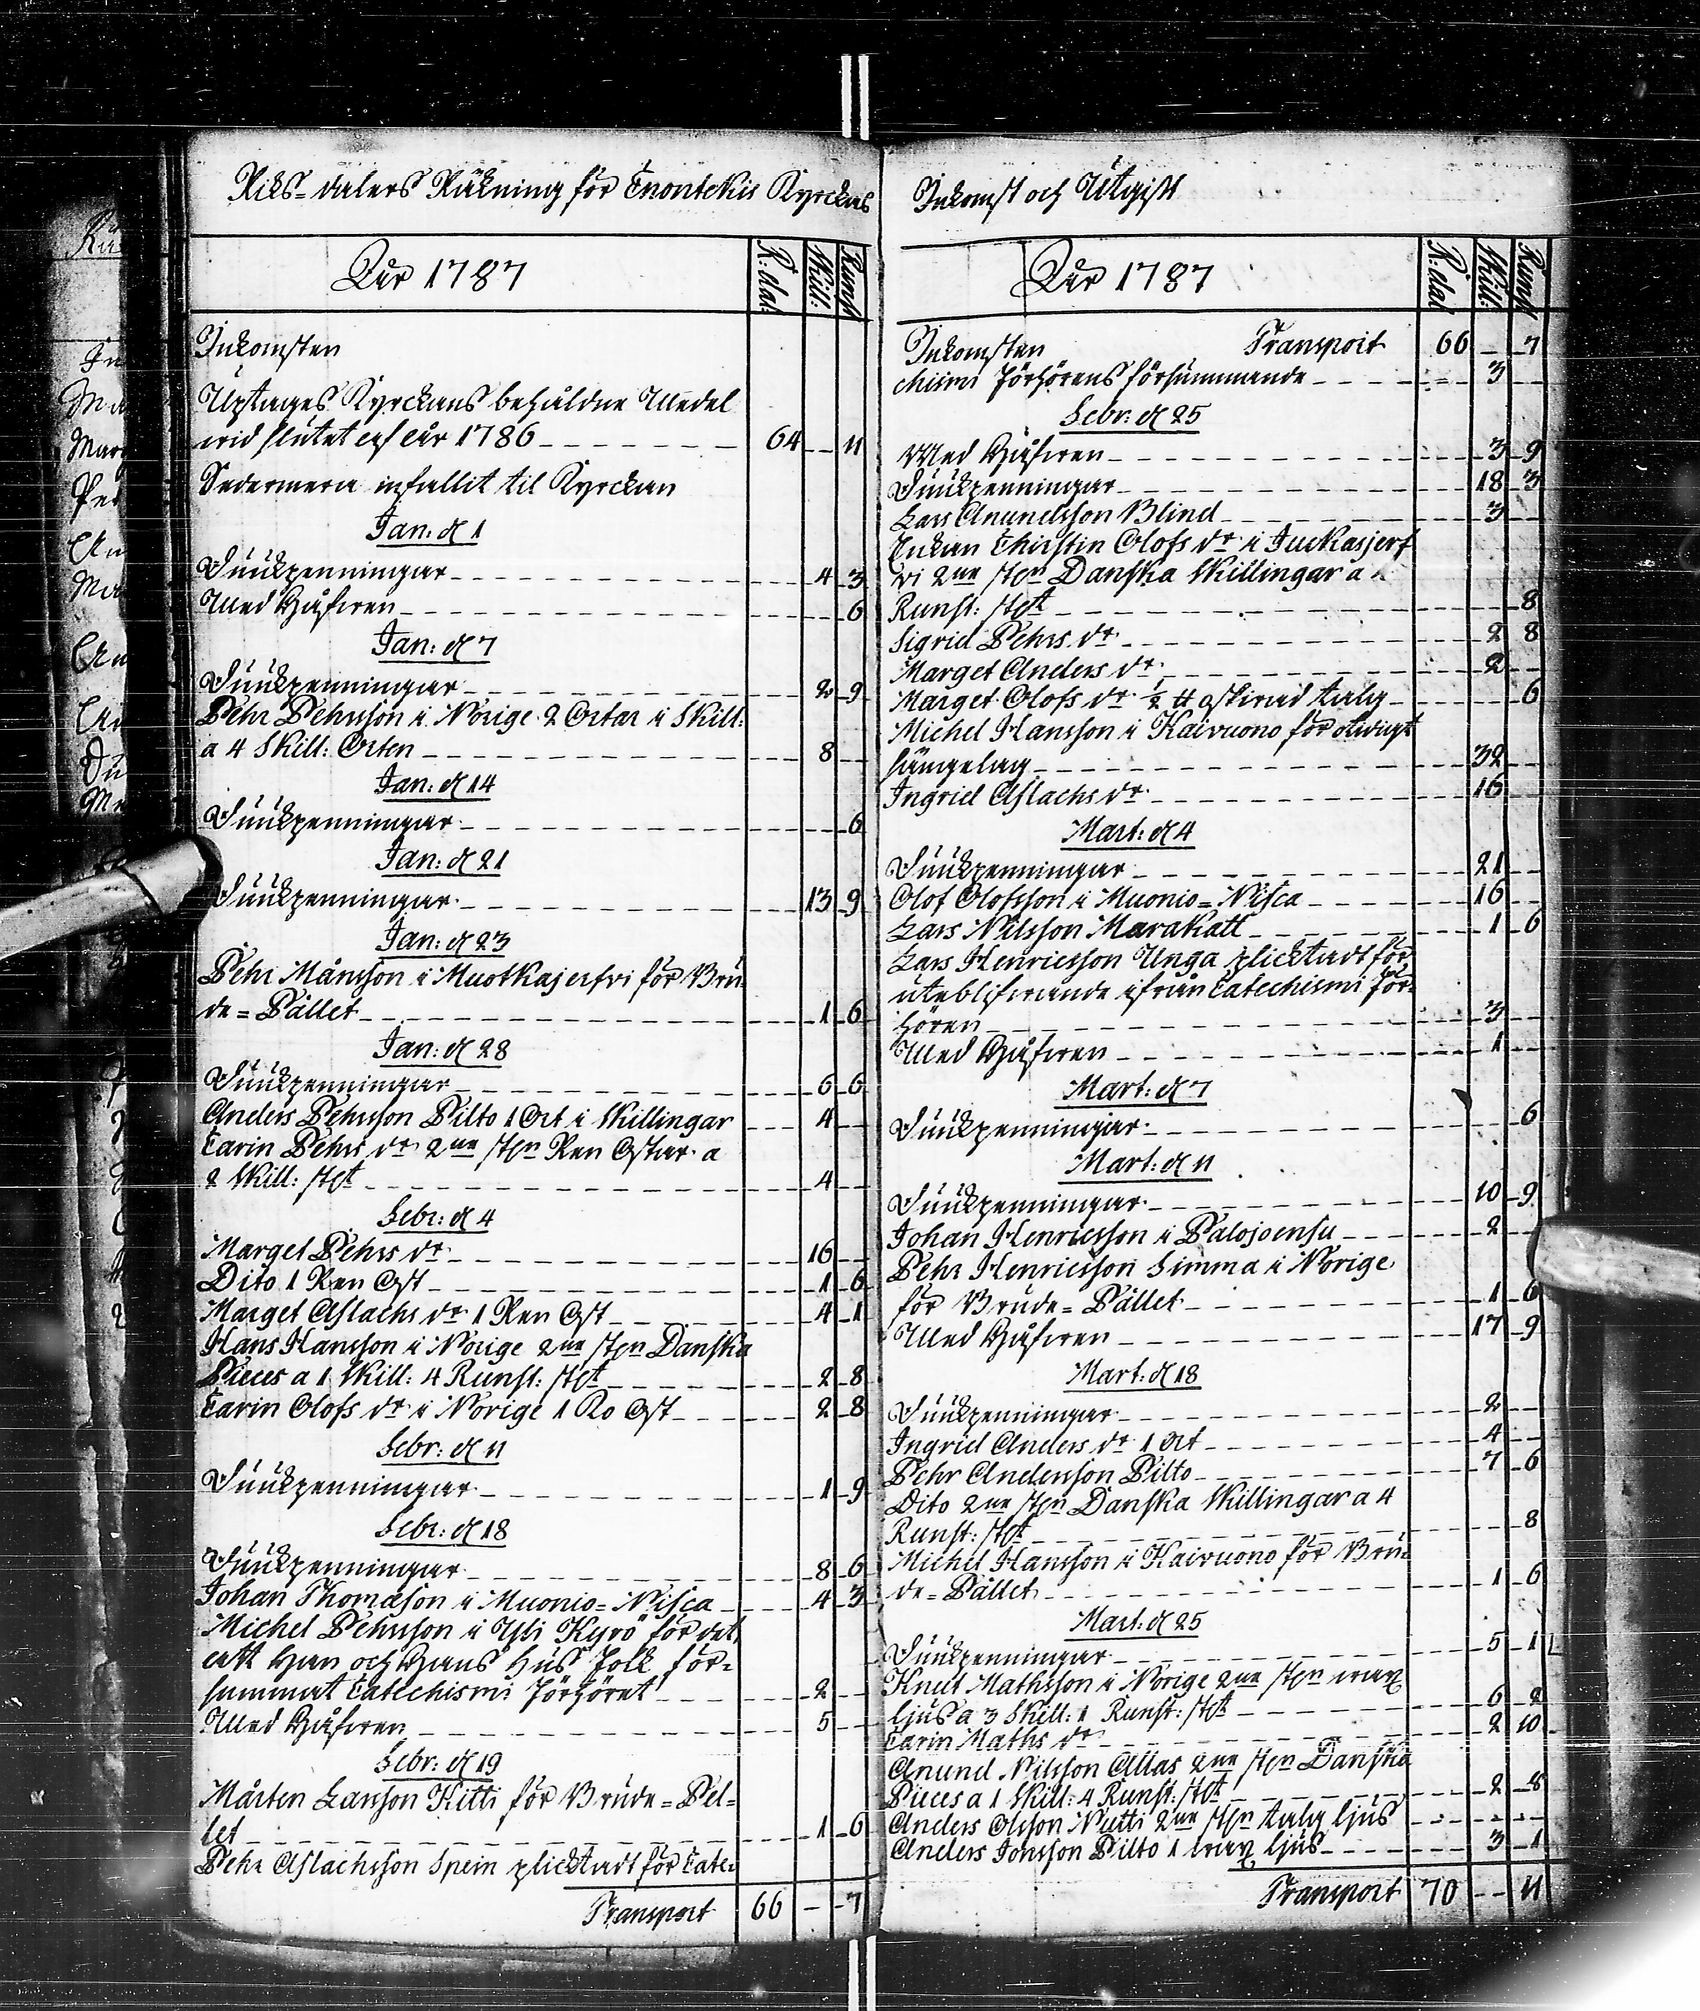 Riks-dalers Räkning för Enontekis Kyrckas
Åhr 1787 R:dal: Skill: Runst
Inkomsten
Uptages Kyrckans behåldne Medel
wid slutet af år 1786 64 - 11
Sedermera infallit til Kyrckan
Jan: d 1
Siukpenningar 4 3
Med Håfwen 6
Jan: d 7
Siukpenningar 2 9
Pehr Pehrsson i Norige 2 Ortar i Skill:
a 4 Skill: Orten 8
Jan: d 14
Siukpenningar 6
Jan: d 21
Siukpenningar 13 9
Jan: d 23
Pehr Månsson i Muotkajerfvi för Bru-
de=Pället 1 6
Jan: d 28
Siukpenningar 6 6
Anders Pehrsson Pilto 1 Ort i Skillingar 4
Carin Pehrs dr 2ne st:n Ren Ostar a
2 Skill: st 4
Febr: d 4
Marget Pehrs dr 16
Dito 1 Ren Ost 1 6
Marget Aslachs dr 1 Ren Ost 4 1
Hans Hansson i Norige 2ne st:n Danska
Pieces a 1 Skill: 4 Runst: st 2 8
Carin Olofs dr i Norige 1 Ko Ost 2 8
Febr: d 11
Siukpenningar 1 9
Febr: d 18
Siukpenningar 8 6
Johan Thomæson i Muonio=Nisca 4 3
Michel Pehrsson i Yli Kyrö för det
att han och hans Hus folk för=
summat Catechismi Förhöret 2
Med Håfwen 5
Febr: d 19
Mårten Larsson Kitti för Brude=Pel=
let 1 6
Pehr Aslachsson Spein plicktadt för Cate=
Transport 66 - 7
Inkomst och Utgift
Åhr 1787 R:dal Skill: Runst
Inkomsten Transport 66 - 7
chismi Förhörens försummande 3
Febr: d 25
Med Håfwen 3 9
Siukpenningar 18 3
Lars Anundsson Blind 3
Enkan Chirstin Olofs dr i Juckasjerf
vi 2ne st:n Danska Skillingar a 4
Runst: st 8
Sigrid Pehrs dr 2 8
Marget Anders dr 2
Marget Olofs dr ½ ℔ oskirad talg 6
Michel Hansson i Kaivuono för olaugt
sängelag 32
Ingrid Aslachs dr 16
Mart: d 4
Siukpenningar 21
Olof Olofsson i Muonio=Nisca 16
Lars Nilsson Marakatt 1 6
Lars Henricsson Unga plicktadt för
uteblifwande ifrån Catechismi för=
hören 3
Med Håfwen 1
Mart: d 7
Siukpenningar 6
Mart: d 11
Siukpenningar 10 9
Johan Henricsson i Palojoensu 2
Pehr Henricsson Simma i Norige
för Brude=Pället 1 6
Med Håfwen 17 9
Mart: d 18
Siukpenningar 2
Ingrid Anders dr 1 Ort 4
Pehr Andersson Pilto 7 6
Dito 2ne st:n Danska Skillingar a 4
Runst: st 8
Michel Hansson i Kaivuono för Bru=
de=Pället 1 6
Mart: d 25
Siukpenningar 5 1
Knut Mathsson i Norige 2ne st:n wax
ljus a 3 Skill: 1 Runst: st 6 2
Carin Maths dr 2 10
Anund Nilsson Allas 2ne st:n Danska
Pieces a 1 Skill: 4 Runst: st 2 8
Anders Olsson Nutti 2ne st:n talg ljus
Anders Jonsson Pilto 1 wax ljus 3 1
Transport 70 - 11